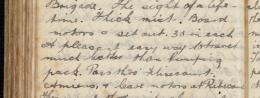 Brigade. The sight of a life-
time. Thick mist. Board
motors & set out. 30 in each
A pleasant easy way to travel
much better than humping
pack. Pass thro' Flixecourt
Amiens, & leave motors at Ribecourt